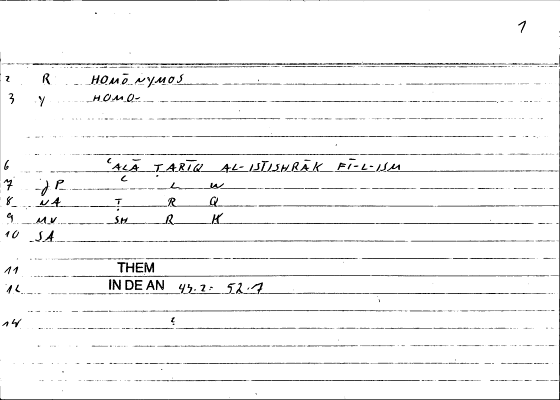 1
2 R HOMŌNYMOS
3 y HOMO-
6 ʿALĀ ṬARĪQ AL-ISTISHRĀK FĪ-L-ISM
7 JP ʿ L W
8 NA Ṭ R Q
9 MV SH R K
10 SA
11 THEM
12 IN DE AN 43.2= 52.7
14 ʿ